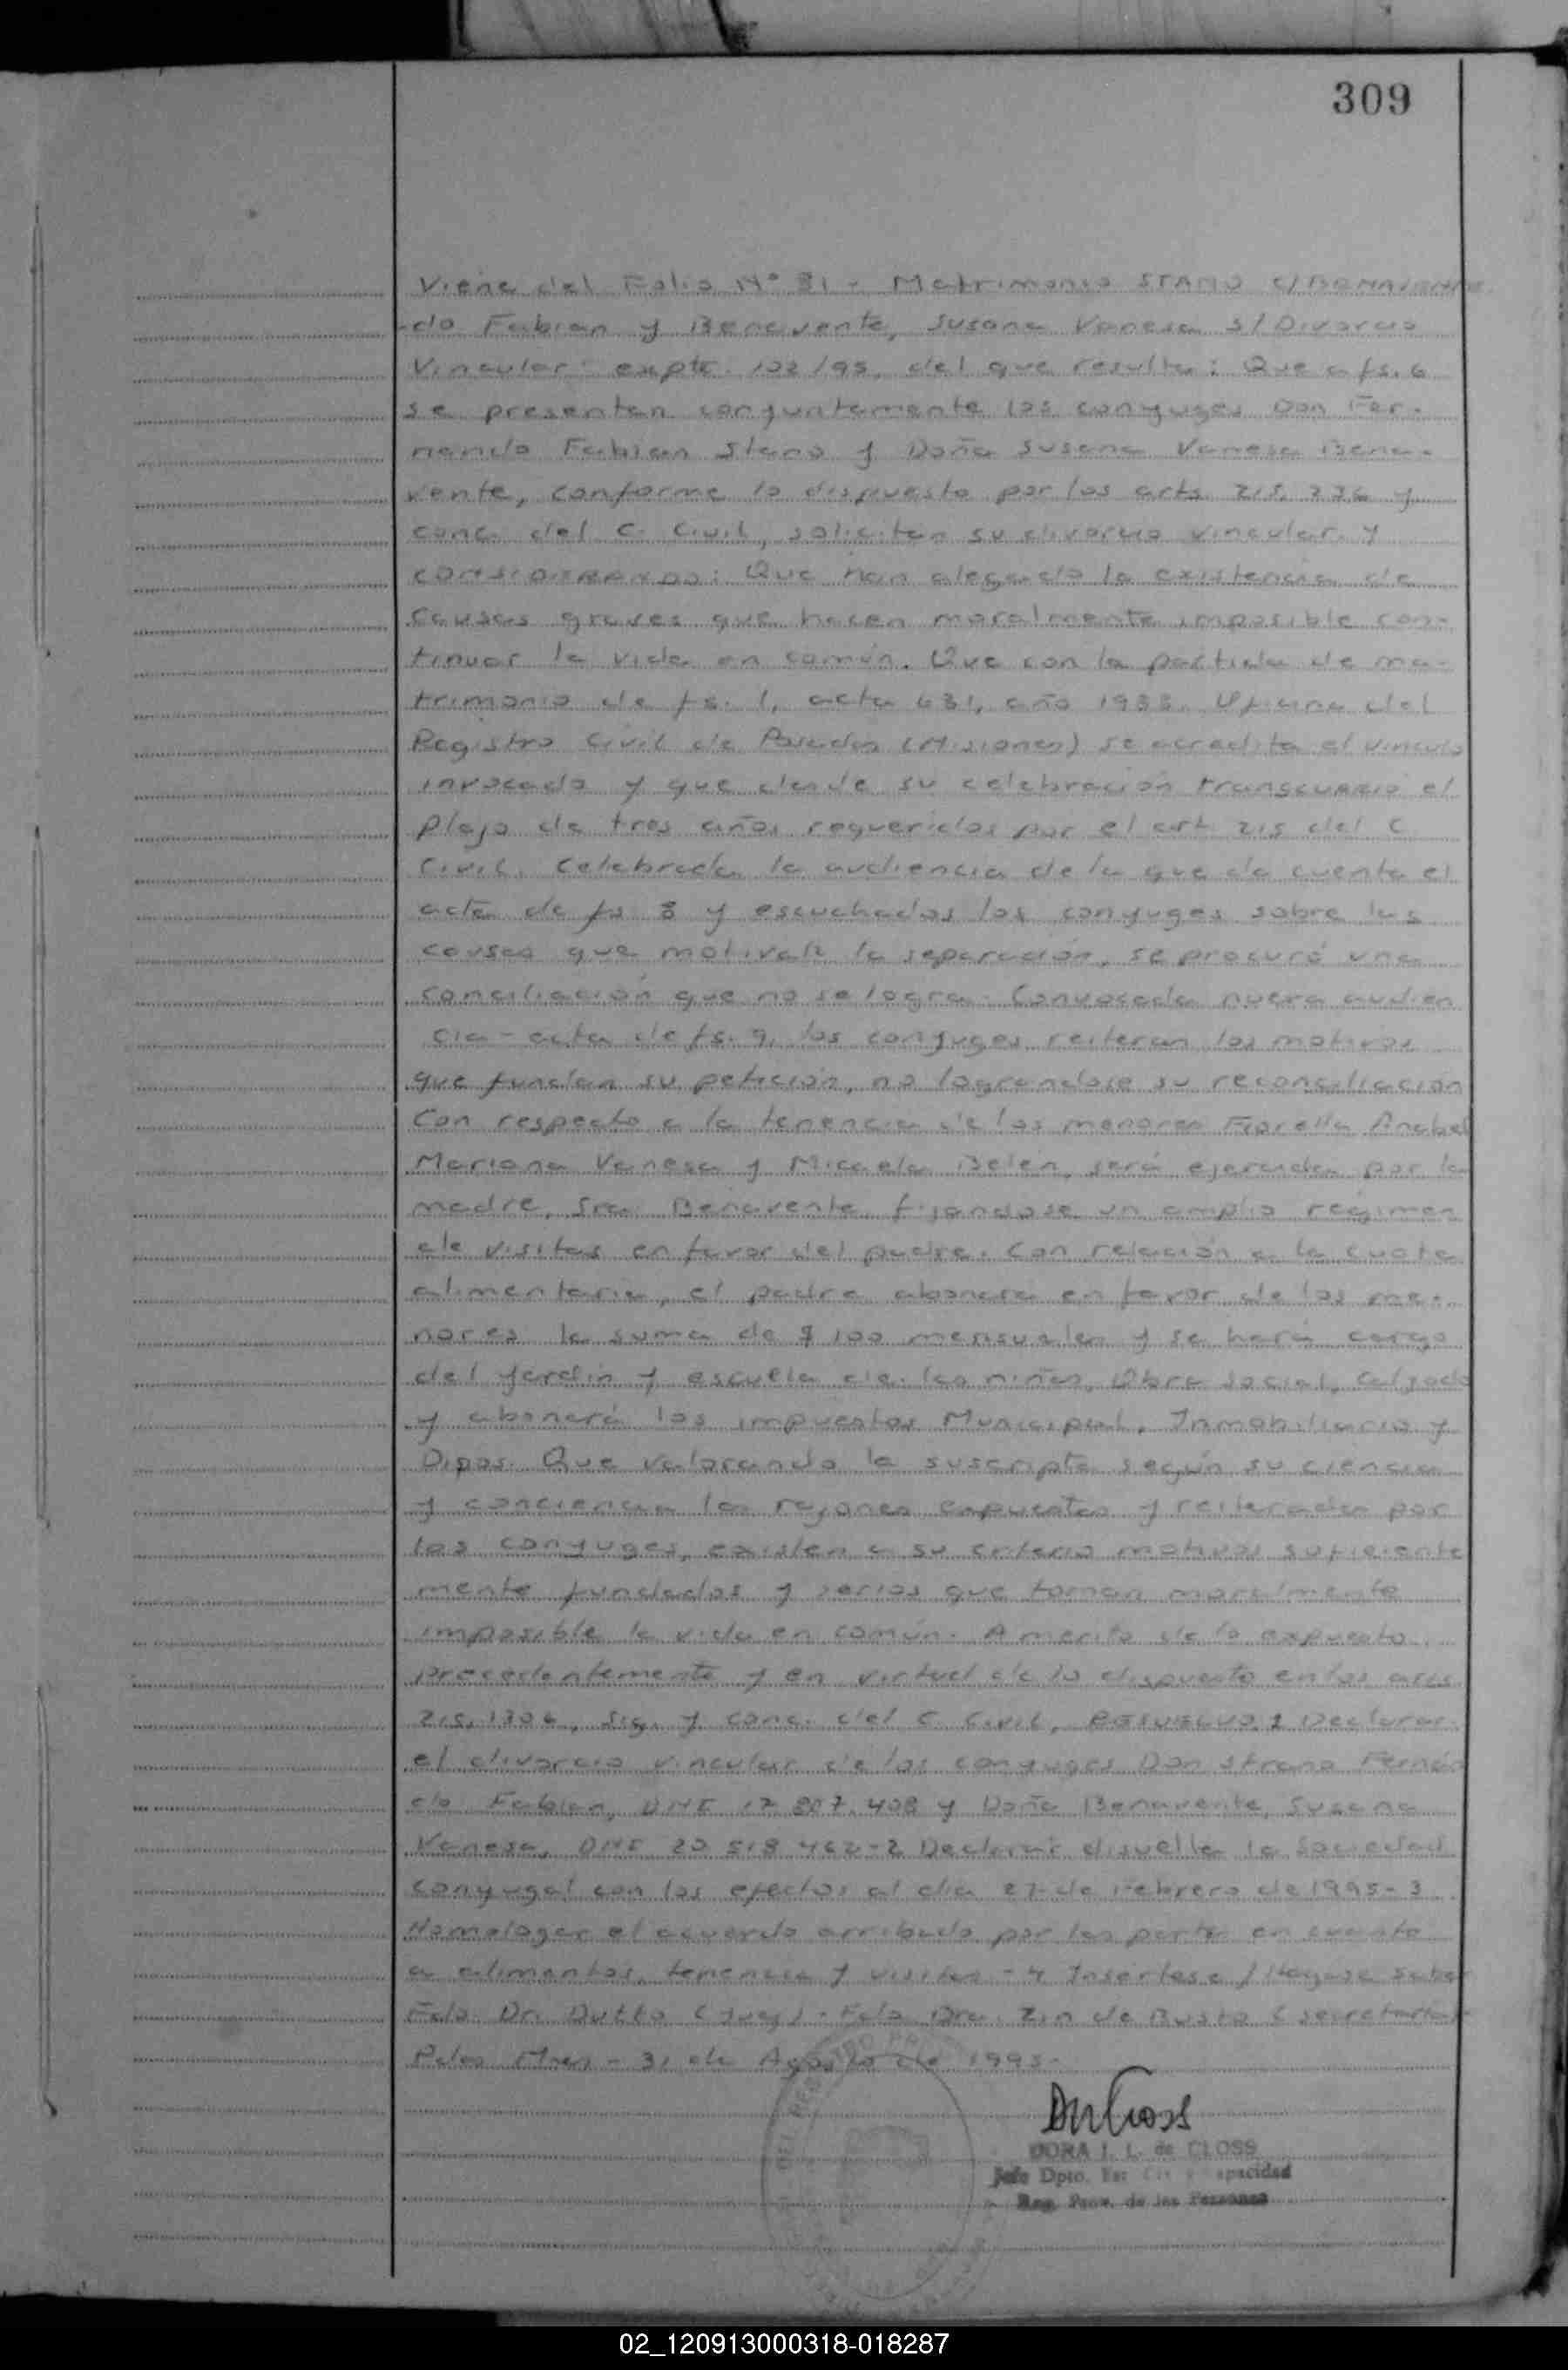 309
Viene del Folio Nº 31 - Matrimonio STANO C/BENAVENTE
-do Fabian y Benavente, Susana Vanesa s/ Divorcio
Vincular expte. 102/95, del que resulta: Que a fs. 6
se presentan conjuntamente los conyuges Don Fer-
nando Fabian Stano y Doña Susana Vanesa Bena-
vente, conforme lo dispuesto por los arts 215, 236 y
conc. del C. Civil, solicitan su divorcio vincular y
CONSIDERANDO: Que han alegado la existencia de
causas graves que hacen moralmente imposible con-
tinuar la vida en común. Que con la partida de ma-
trimonio de fs. 1, acta 631, año Oficina del
Registro Civil de Posadas (Misiones) se acredita el vinculo
invocado y que desde su celebración transcurrió el
plazo de tres años requeridos por el art. 215 del C
Civil. Celebrada la audiencia de la que da cuenta el
acta de fs 8 y escuchados los conyuges sobre las
causas que motivan la separación, se procuró una
conciliación que no se logra. Convocada nueva audien
cia - acta de fs. 9, los conyuges reiteran los motivos
que fundan su petición, no lograndose su reconciliación
Con respecto a la tenencia de los menores Fiorella Anabel
Mariana Vanesa y Micaela Belén, será ejercida por la
madre, Sra. Benavente fijandose un amplio regimen
de visitas en favor del padre. Con relación a la cuota
alimentaria, el padre abonara en favor de los me-
nores la suma de $ 100 mensuales y se hará cargo
del jardin y escuela de las niñas, Obra Social, Calzado
y abonará los impuestos Municipal, Inmobiliario y
Dipos. Que valorando la suscripta según su ciencia
y conciencia las rezones expuestas y reiteradas por
los conyuges, existen a su criterio motivos suficiente
mente fundados y serios que tornan moralmente
imposible la vida en común. A merito de lo expuesto
precedentemente y en virtud de lo dispuesto en los arts
215, 1306, Sig. y conc. del C Civil, RESUELVO 1 Declarar
el divorcio vincular de los conyuges Don Strano Fernán
do Fabian, DNI 17 807.408 y Doña Benavente, Susana
Vanesa, DNI 20 518 462 - 2 Declarar disuelta la Sociedad
conyugal con los efectos al dia 27 de Febrero de 1995 - 3
Homologar el acuerdo arribado por las partes en cuanto
a alimentos, tenencia y visitas - 4 Insértese / Hagase saber
Fdo. Dr. Dutto (Juez) - Fdo Dra. Zin de Busto (secretaria)
Pdas Mnes - 31 de Agosto de 1995-
DORA I. L. de CLOSS
Jefe Dpto. Est Civ y Capacidad
Reg. Prov. de las Personas
02_120913000318-018287